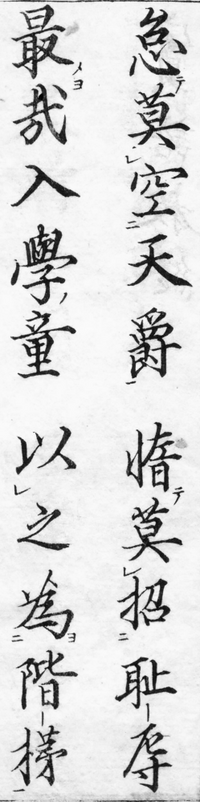 怠テ莫レ空ニ天爵一 惰テ莫レ招ニ耻辱一
最メヨ哉入學ノ童 以レ之為ヨニ階梯一